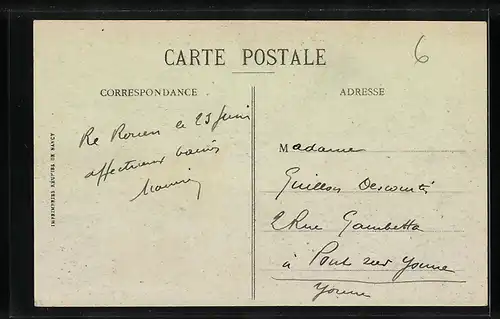 6
CARTE POSTALE
CORRESPONDANCE
ADRESSE
Rouen le 23 Juin
affectueux baisers
Madame
Guillon
2 Rue Gambetta
à Pont sur Yonne
Yonne
IMPRIMERIES RÉUNIES DE NANCY